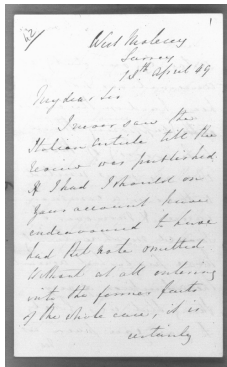 62
1
West Molesey
Surrey
13th April 49
My dear Sir
I never saw the
Italian Article till the
review was published
If I had I should on
your account have
endeavoured to have
had that note omitted
Without at all entering
into the former facts
of the whole case, it is
certainly